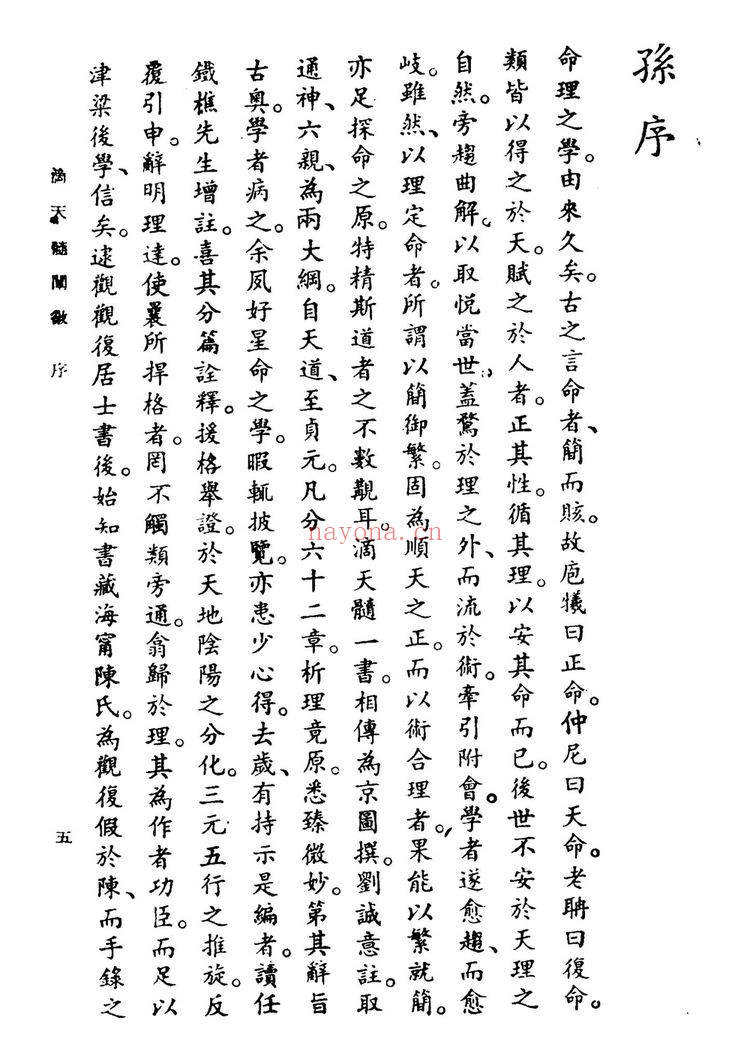 孫序
命理之學。由來久矣。古之言命者、簡而賅。故庖犧曰正命。仲尼曰天命。老聃曰復命。
類皆以得之於天。賦之於人者。正其性。循其理。以安其命而已。後世不安於天理之
自然。旁趨曲解。以取悅當世。蓋騖於理之外、而流於術。牽引附會。學者遂愈趨、而愈
岐。雖然、以理定命者。所謂以簡御繁。固為順天之正。而以術合理者。果能以繁就簡。
亦足探命之原。特精斯道者之不數覯耳。滴天髓一書。相傳為京圖撰。劉誠意註。取
通神、六親、為兩大綱。自天道、至貞元。凡分六十二章。析理竟原。悉臻微妙。第其辭旨
古奧。學者病之。余夙好星命之學。暇輒披覽。亦患少心得。去歲、有持示是編者。讀任
鐵樵先生增註。喜其分篇詮釋。援格舉證。於天地陰陽之分化。三元五行之推旋。反
覆引申。辭明理達。使曩所捍格者。罔不觸類旁通。翕歸於理。其為作者功臣。而足以
津梁後學、信矣。逮觀觀復居士書後。始知書藏海甯陳氏。為觀復假於陳、而手錄之
滴天髓闡微 序
五
nayona.cn